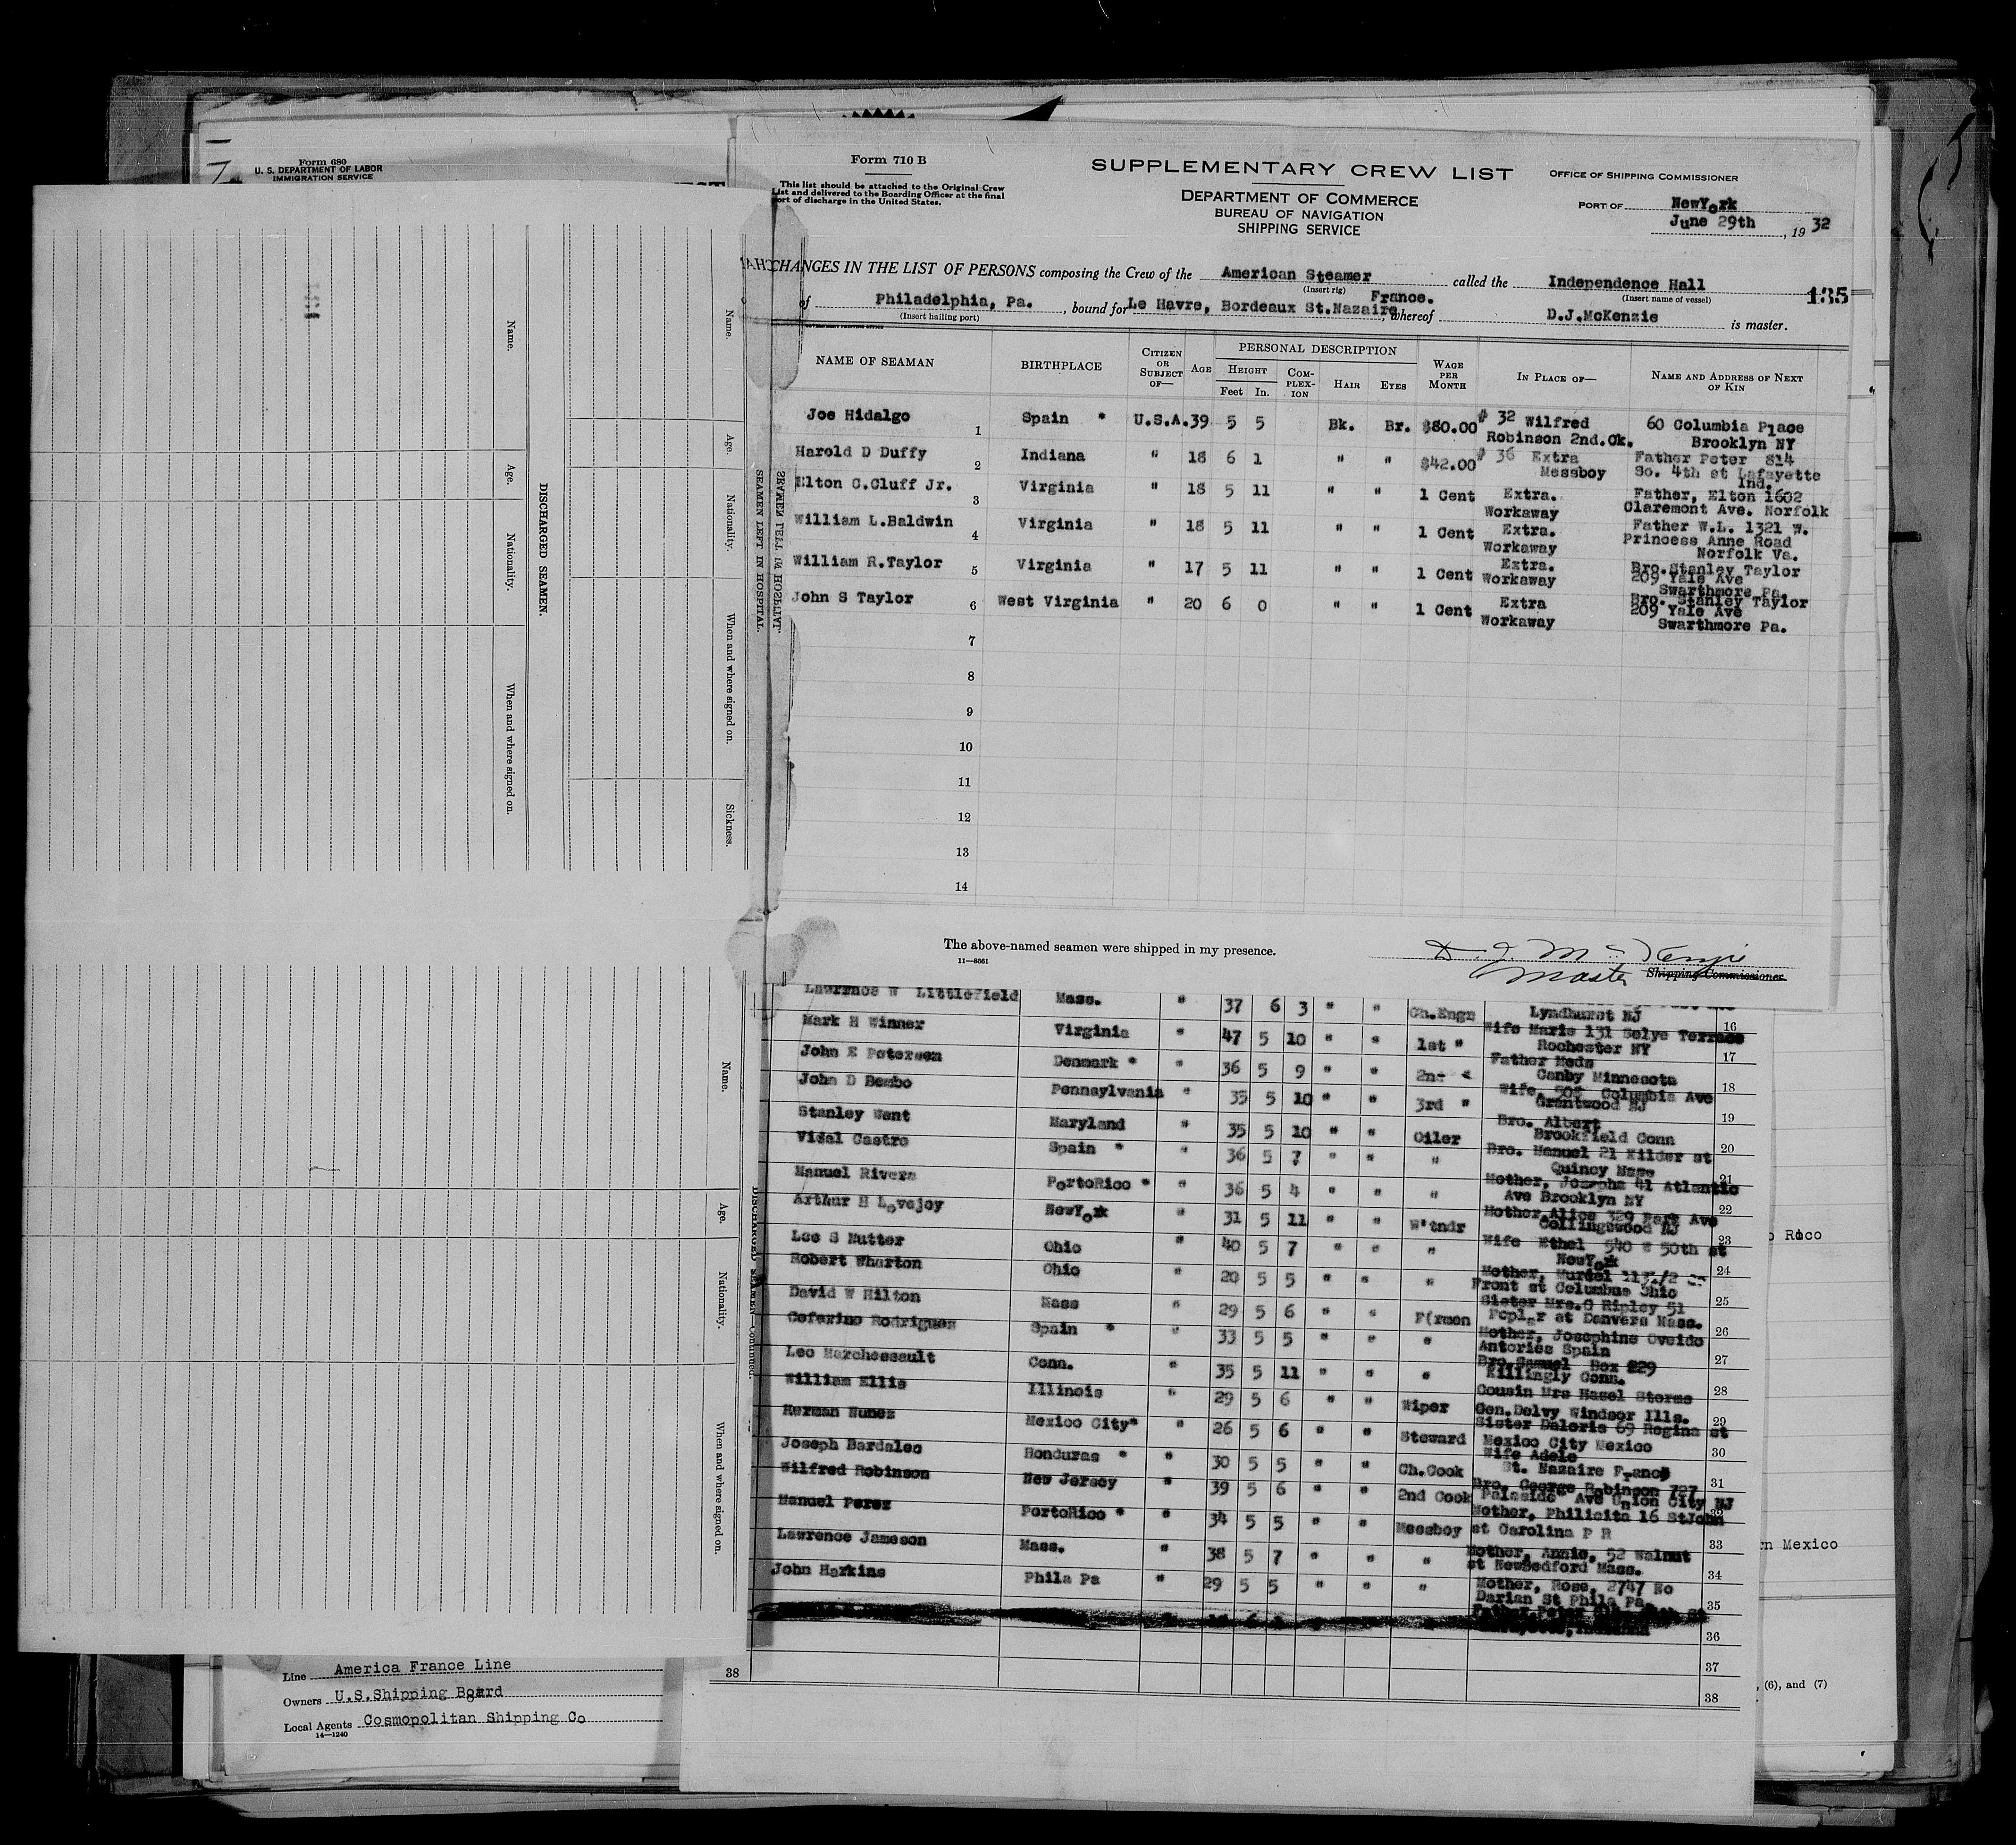 Form 680
U. S. DEPARTMENT OF LABOR
IMMIGRATION SERVICE
Form 710 B
This list should be attached to the Original Crew
List and delivered to the Boarding Officer at the final
port of discharge in the United States.
SUPPLEMENTARY CREW LIST
DEPARTMENT OF COMMERCE
BUREAU OF NAVIGATION
SHIPPING SERVICE
OFFICE OF SHIPPING COMMISSIONER
PORT OF NewYork
June 29th, 1932
CHANGES IN THE LIST OF PERSONS composing the Crew of the American Steamer called the Independence Hall
(Insert rig) (Insert name of vessel)
135
of Philadelphia, Pa., bound for Le Havre, Bordeaux St.Nazaire France., whereof D.J.McKenzie is master.
(Insert hailing port)
NAME OF SEAMAN BIRTHPLACE CITIZEN OR SUBJECT OF— AGE PERSONAL DESCRIPTION HEIGHT Feet In. COMPLEXION HAIR EYES WAGE PER MONTH IN PLACE OF— NAME AND ADDRESS OF NEXT OF KIN
Joe Hidalgo 1 Spain * U.S.A. 39 5 5 Bk. Br. $80.00 # 32 Wilfred Robinson 2nd.Ck. 60 Columbia Place Brooklyn NY
Harold D Duffy 2 Indiana " 18 6 1 " " $42.00 # 36 Extra Messboy Father Peter 814 So. 4th st Lafayette Ind.
Elton C.Cluff Jr. 3 Virginia " 18 5 11 " " 1 Cent Extra. Workaway Father, Elton 1602 Claremont Ave. Norfolk
William L.Baldwin 4 Virginia " 18 5 11 " " 1 Cent Extra. Workaway Father W.L. 1321 W. Princess Anne Road Norfolk Va.
William R.Taylor 5 Virginia " 17 5 11 " " 1 Cent Extra. Workaway Bro.Stanley Taylor 209 Yale Ave Swarthmore Pa.
John S Taylor 6 West Virginia " 20 6 0 " " 1 Cent Extra Workaway Bro. Stanley Taylor 209 Yale Ave Swarthmore Pa.
7
8
9
10
11
12
13
14
The above-named seamen were shipped in my presence.
11—8661
D. J. McKenzie
Master Shipping Commissioner
Lawrence W Littlefield Mass. " 37 6 3 " " Ch.Engr Lyndhurst NJ 16
Mark H Winner Virginia " 47 5 10 " " 1st " Wife Marie 131 Selye Terrace Rochester NY 17
John E Petersen Denmark * " 36 5 9 " " 2nd " Father Mads Canby Minnesota 18
John D Bembo Pennsylvania " 35 5 10 " " 3rd " Wife, Columbia Ave Grantwood NJ 19
Stanley Want Maryland " 35 5 10 " " Oiler Bro. Albert Brookfield Conn 20
Vidal Castro Spain * " 36 5 7 " " " Bro. Manuel 21 Kilder st Quincy Mass 21
Manuel Rivera PortoRico * " 36 5 4 " " " Mother, Josepha 41 Atlantic Ave Brooklyn NY 22
Arthur H Lovejoy NewYork " 31 5 11 " " W'tndr Mother, Alice 329 Park Ave Collingswood NJ 23
Lee S Nutter Ohio " 40 5 7 " " " Wife Ethel 540 W 50th st NewYork 24
Robert Wharton Ohio " 20 5 5 " " " Mother, Front st Columbus Ohio 25
David W Hilton Mass " 29 5 6 " " F(rmen Sister Mrs.G Ripley 51 Poplar st Danvers Mass. 26
Ceferino Rodriguez Spain * " 33 5 5 " " " Mother, Josephine Oveido Antories Spain 27
Leo Marchessault Conn. " 35 5 11 " " " Bro Samuel Box 229 Killingly Conn. 28
William Ellis Illinois " 29 5 6 " " Wiper Cousin Mrs Hazel Storms Gen.Delvy Windsor Ills. 29
Herman Nunez Mexico City* " 26 5 6 " " Steward Sister Daloris 69 Regina st Mexico City Mexico 30
Joseph Bardales Honduras * " 30 5 5 " " Ch.Cook Wife Adele St. Nazaire France 31
Wilfred Robinson New Jersey " 39 5 6 " " 2nd Cook Bro. George Robinson 727 Palaside Ave Union City NJ 32
Manuel Perez PortoRico * " 34 5 5 " " Messboy Mother, Philicita 16 StJohn st Carolina P R 33
Lawrence Jameson Mass. " 38 5 7 " " " Mother, Annie, 52 Walnut st NewBedford Mass. 34
John Harkins Phila Pa " 29 5 5 " " " Mother, Rose, 2747 No Darian St Phila Pa 35
36
37
38 38
SEAMEN LEFT IN HOSPITAL.
Name. Age. Nationality. When and where signed on. Sickness.
DISCHARGED SEAMEN.
Name. Age. Nationality. When and where signed on.
DISCHARGED SEAMEN—Continued.
Name. Age. Nationality. When and where signed on.
Rico
Mexico
, (6), and (7)
Line America France Line
Owners U.S.Shipping Board
Local Agents Cosmopolitan Shipping Co
14—1240